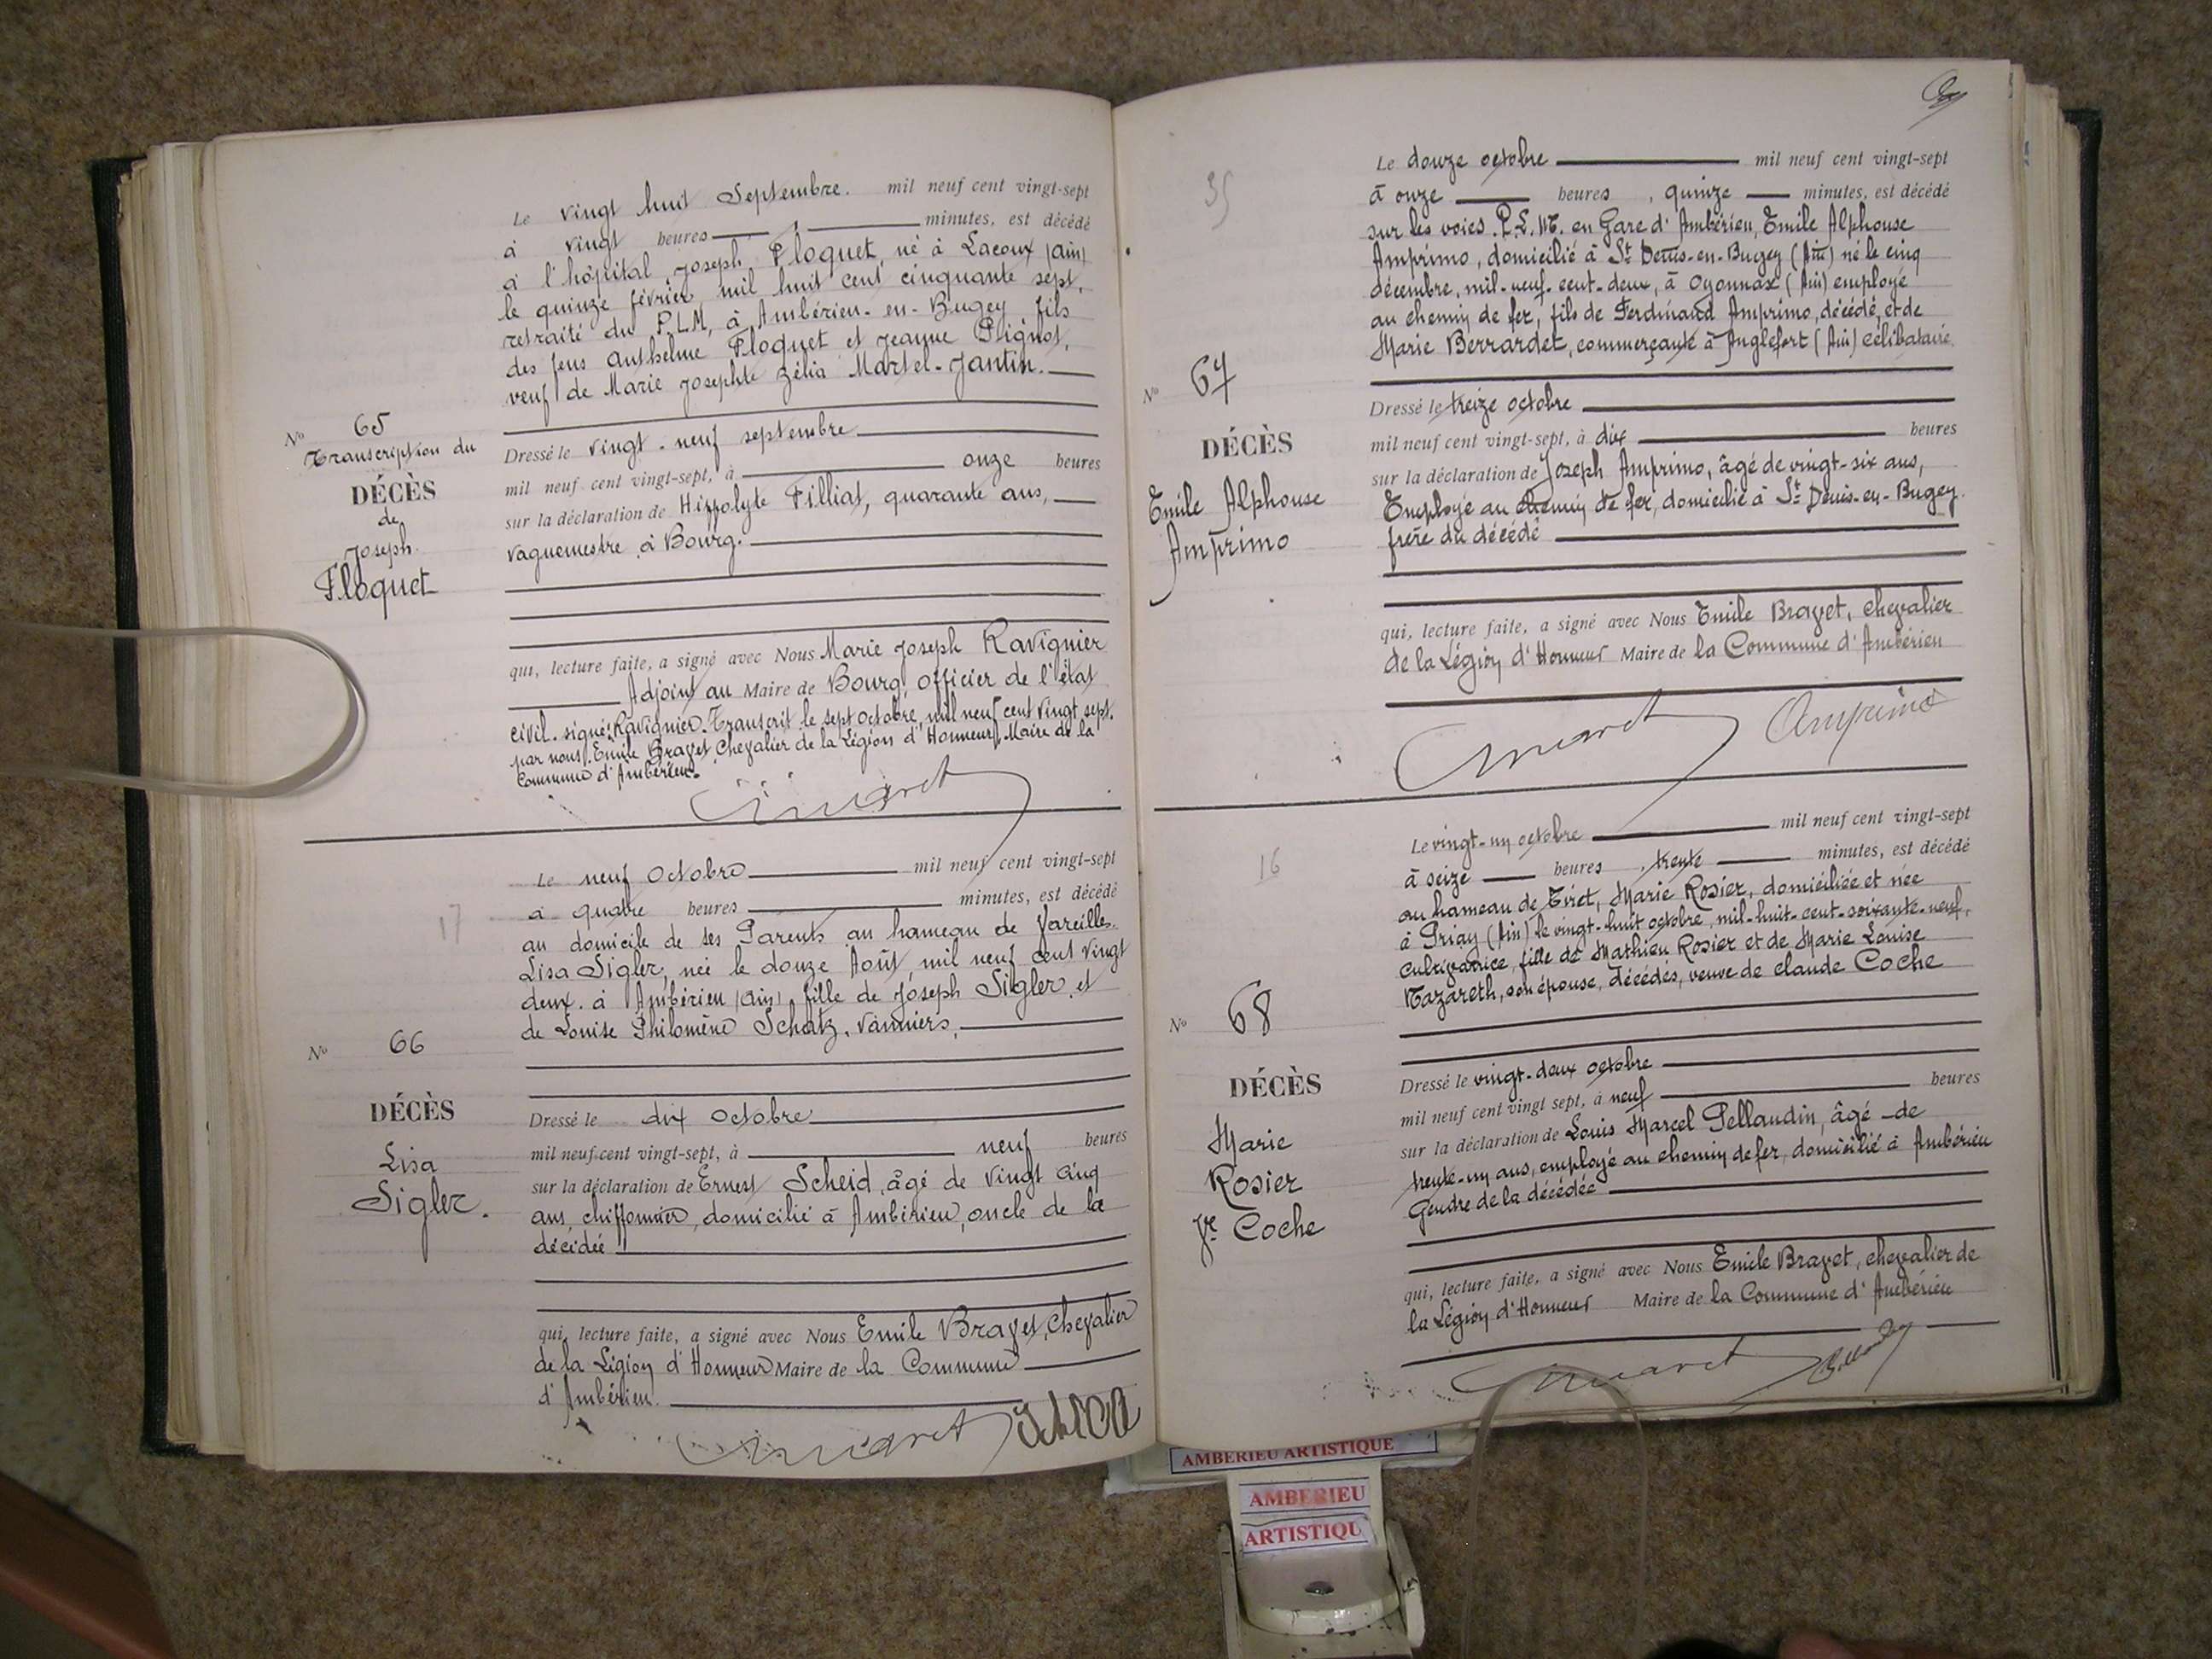 Le vingt huit Septembre. mil neuf cent vingt-sept
à vingt heures , minutes, est décédé
à l'hôpital, Joseph Floquet, né à Lacoux (ain)
le quinze février, mil huit cent cinquante sept,
retraité du P.L.M, à Ambérieu-en-Bugey, fils
des feus Anthelme Floquet et Jeanne Pignol,
veuf de Marie Josephte Zélia Martel-Jantin.
No 65
Transcription du
DÉCÈS
de
Joseph
Floquet
Dressé le vingt-neuf septembre
mil neuf cent vingt-sept, à onze heures
sur la déclaration de Hippolyte Filliat, quarante ans,
vaguemestre à Bourg.
qui, lecture faite, a signé avec Nous Marie Joseph Ravignier
Adjoint au Maire de Bourg, officier de l'état
civil. signé: Ravignier. Transcrit le sept octobre, mil neuf cent vingt sept.
par nous, Emile Bravet Chevalier de la Légion d'Honneur, Maire de la
Commune d'Ambérieu.
17
Le neuf Octobre mil neuf cent vingt-sept
à quatre heures minutes, est décédé
au domicile de ses Parents au hameau de Vareilles
Lisa Sigler, née le douze Août, mil neuf cent vingt
deux. à Ambérieu (ain) fille de Joseph Sigler, et
de Louise Philomène Schatz, vanniers,
No 66
DÉCÈS
Lisa
Sigler.
Dressé le dix Octobre
mil neuf cent vingt-sept, à neuf heures
sur la déclaration de Ernest Scheid, âgé de vingt cinq
ans, chiffonnier, domicilié à Ambérieu, oncle de la
décédée
qui, lecture faite, a signé avec Nous Emile Bravet, Chevalier
de la Légion d'Honneur Maire de la Commune
d'Ambérieu.
35
Le douze octobre mil neuf cent vingt-sept
à onze heures , quinze minutes, est décédé
sur les voies P.L.M. en Gare d'Ambérieu, Emile Alphonse
Amprimo, domicilié à St Denis-en-Bugey (Ain) né le cinq
décembre, mil-neuf-cent-deux, à Oyonnax (Ain) employé
au chemin de fer, fils de Ferdinand Amprimo, décédé, et de
Marie Berrardet, commerçante à Anglefort (Ain) célibataire.
No 67
DÉCÈS
Emile Alphonse
Amprimo
Dressé le treize octobre
mil neuf cent vingt-sept, à dix heures
sur la déclaration de Joseph Amprimo, âgé de vingt-six ans,
Employé au chemin de fer, domicilié à St Denis-en-Bugey.
frère du décédé
qui, lecture faite, a signé avec Nous Emile Bravet, chevalier
de la Légion d'Honneur Maire de la Commune d'Ambérieu
Amprimo
16
Le vingt-un octobre mil neuf cent vingt-sept
à seize heures , trente minutes, est décédé
au hameau de Tiret, Marie Rosier, domiciliée et née
à Priay (Ain) le vingt-huit octobre, mil-huit-cent-soixante-neuf,
cultivatrice, fille de Mathieu Rosier et de Marie Louise
Nazareth, son épouse, décédés, veuve de claude Coche
No 68
DÉCÈS
Marie
Rosier
Ve Coche
Dressé le vingt-deux octobre
mil neuf cent vingt sept, à neuf heures
sur la déclaration de Louis Marcel Pellaudin, âgé de
trente-un ans, employé au chemin de fer, domicilié à Ambérieu
Gendre de la décédée
qui, lecture faite, a signé avec Nous Emile Bravet, chevalier de
la Légion d'Honneur Maire de la Commune d'Ambérieu
AMBERIEU ARTISTIQUE
AMBERIEU
ARTISTIQU